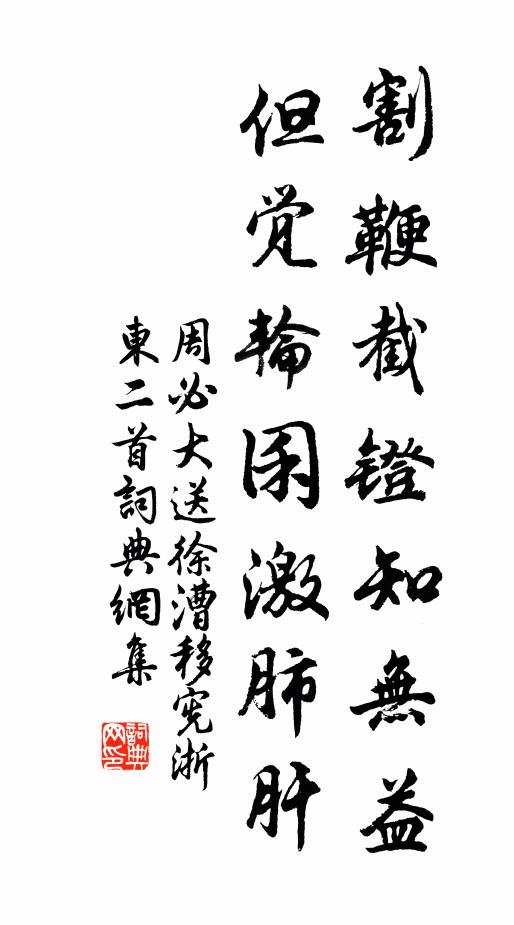 割鞭截镫知無益
但觉輪囷激肺肝
周必大送徐漕移宪浙
東二首詞典網集
詞典
网印